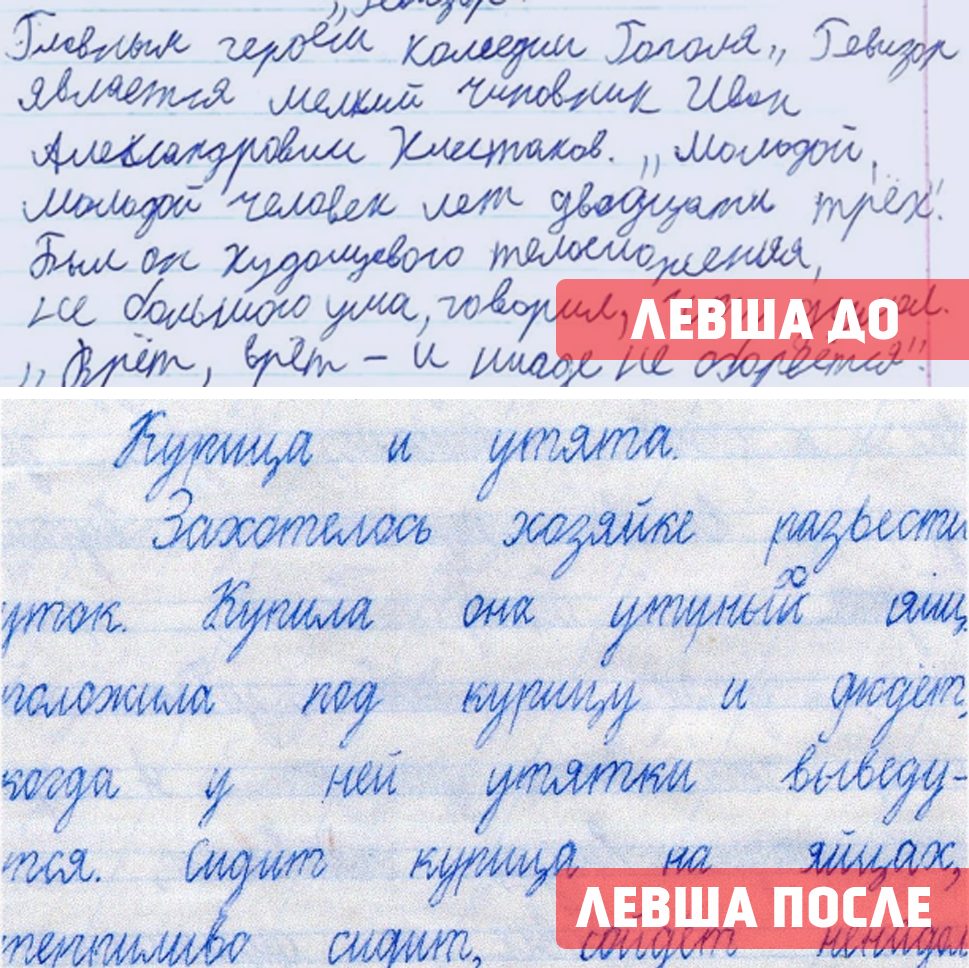 „Ревизор"
Главным героем комедии Гоголя „Ревизор
является мелкий чиновник Иван
Александрович Хлестаков. „Молодой,
молодой человек лет двадцати трёх".
Был он худощавого телосложения,
не большого ума, говорил,
ЛЕВША ДО
„Врёт, врёт – и нигде не оборвётся".
Курица и утята.
Захотелось хозяйке развести
уток. Купила она утиный яиц,
положила под курицу и ждёт,
когда у ней утятки выведу-
тся. Сидит курица на яйцах,
ЛЕВША ПОСЛЕ
терпиливо сидит, сойдёт